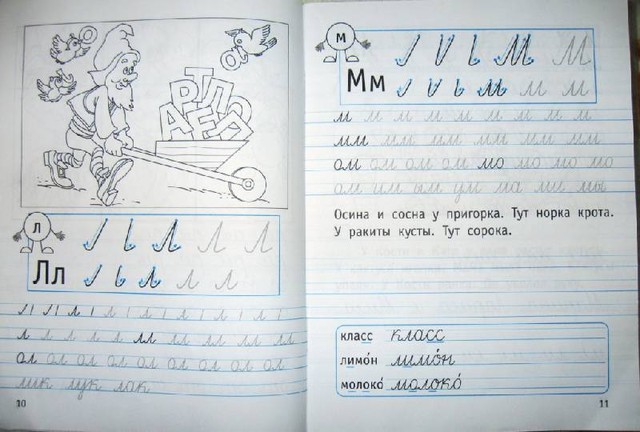 Р Т Л О
А Е Л
л
Л Л Л
Лл л л л
л л л л л л л л л л
л л л л л лл лл лл лл лл лл
ол ол ол ол ол ол ол ол ол
лик лук лак
10
м
М М
Мм М м м
м м м м м м м м м м
мм мм мм мм мм мм мм
ом ом ом ом мо мо мо мо
ом им ым ум ма ми мы
Осина и сосна у пригорка. Тут норка крота.
У ракиты кусты. Тут сорока.
класс класс
лимо́н лимо́н
молоко́ молоко́
11